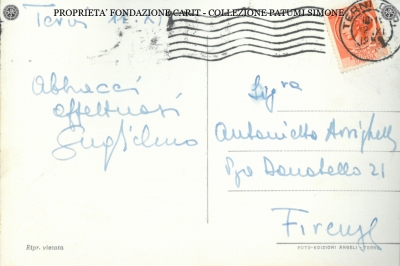 PROPRIETA' FONDAZIONE CARIT - COLLEZIONE PATUMI SIMONE
Terni
TERNI
Abbracci
affettuosi
Guglielmo
Sig.ra
Antonietta Arrighetti
P.za Donatello 21
Firenze
Ripr. vietata
AUTO-EDIZIONI ANGELI - TERNI